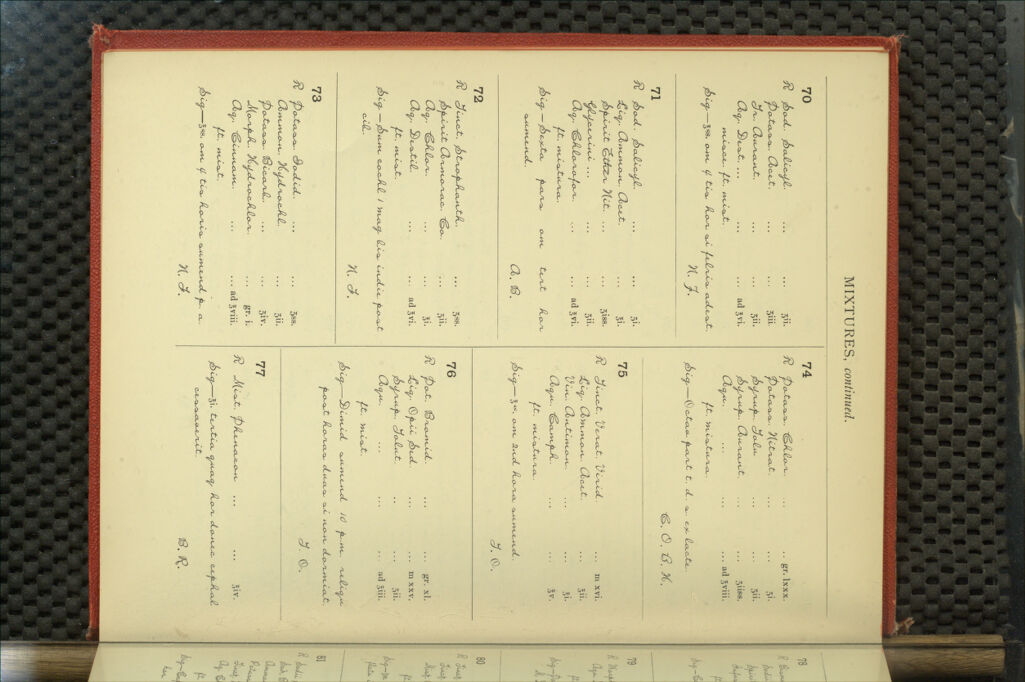 MIXTURES, continued.
70
R Sod. Salicyl. ... ... ʒii.
Potass. Acet. ... ʒiii.
Tr. Aurant. ... ʒii.
Aq. Dest. ... ... ad ʒvi.
misce ft. mist.
Sig—ʒss. om 4 tis hor si febris adest.
N. J.
71
R Sod. Salicyl. ... ... ʒi.
Liq. Ammon. Acet. ... ʒi.
Spirit Ether Nit. ... ʒiss.
Glycerini .... ... ʒii.
Aq. Chlorofor. ... ... ad ʒvi.
ft. mistura.
Sig—Sexta pars om tert hor
sumend.
A. B.
72
R Tinct. Strophanth. ... ʒss.
Spirit Armorac. Co. ... ʒii.
Aq. Chlor. ... ... ʒi.
Aq. Destil. ... ... ad ʒvi.
ft. mist.
Sig—Sum cochl 1 mag bis indie post
cib.
N. J.
73
R Potass. Iodid. ... ... ʒss.
Ammon. Hydrochl. ... ʒii.
Potass. Bicarb. ... ... ʒiv.
Morph. Hydrochlor. ... gr. i.
Aq. Cinnam. ... ... ad ʒviii.
ft. mist.
Sig—ʒss. om 4 tis horis sumend p. a.
N. J.
74
R Potass. Chlor. ... ... gr. lxxx.
Potass. Nitrat. ... ... ʒi.
Syrup. Tolu ... ... ʒii.
Syrup. Aurant. ... ... ʒiiss.
Aqu. ... ... ... ad ʒviii.
ft. mistura.
Sig—Octav part t. d. s. ex lacte.
C. O. B. H.
75
R Tinct. Verat. Virid. ... m xvi.
Liq. Ammon. Acet. ... ʒii.
Vin. Antimon. ... ... ʒi.
Aqu. Camph. ... ... ʒv.
ft. mistura.
Sig—ʒss. om 2nd hora sumend.
J. O.
76
R Pot. Bromid. ... ... gr. xl.
Liq. Opii Sed. ... ... m xxv.
Syrup. Tolut. .. ... ʒii.
Aqu. ... ... ... ad ʒiii.
ft. mist.
Sig—Dimid sumend 10 p.m. reliqu
post horas duas si non dormiat.
J. O.
77
R Mist. Phenazon ... ... ʒiv.
Sig—ʒi. tertia quaq hor donec cephal
cessaverit.
B. R.
78
79
80
81